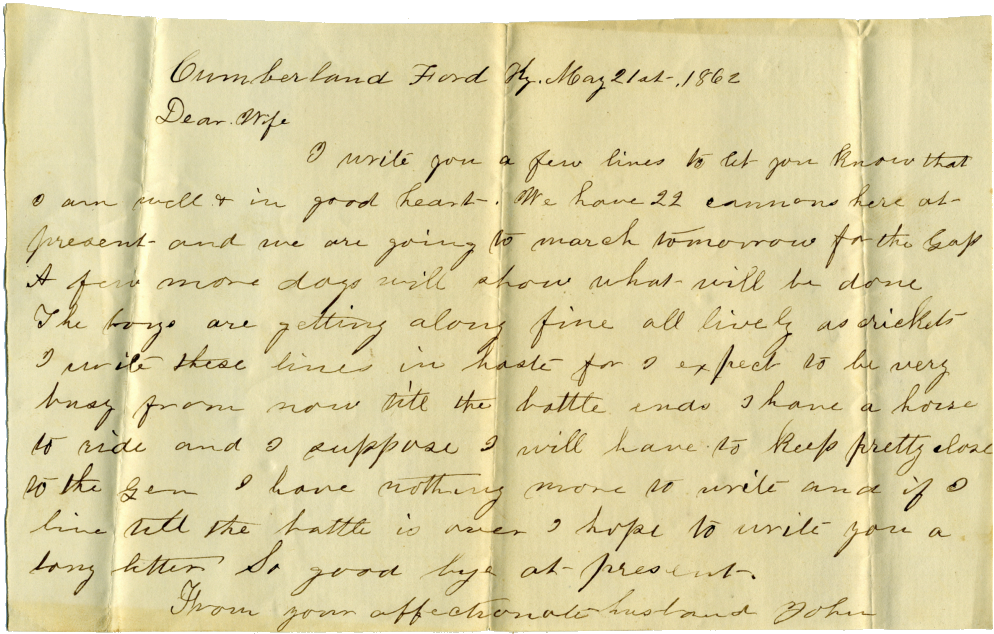 Cumberland Ford Ky. May 21st, 1862
Dear Wife
I write you a few lines to let you know that
I am well & in good heart. We have 22 cannons here at
present and we are going to march tomorrow for the Gap
A few more days will show what will be done
The boys are getting along fine all lively as crickets
I write these lines in haste for I expect to be very
busy from now till the battle ends I have a horse
to ride and I suppose I will have to keep pretty close
to the Gen I have nothing more to write and if I
live till the battle is over I hope to write you a
long letter So good bye at present.
From your affectionate husband John